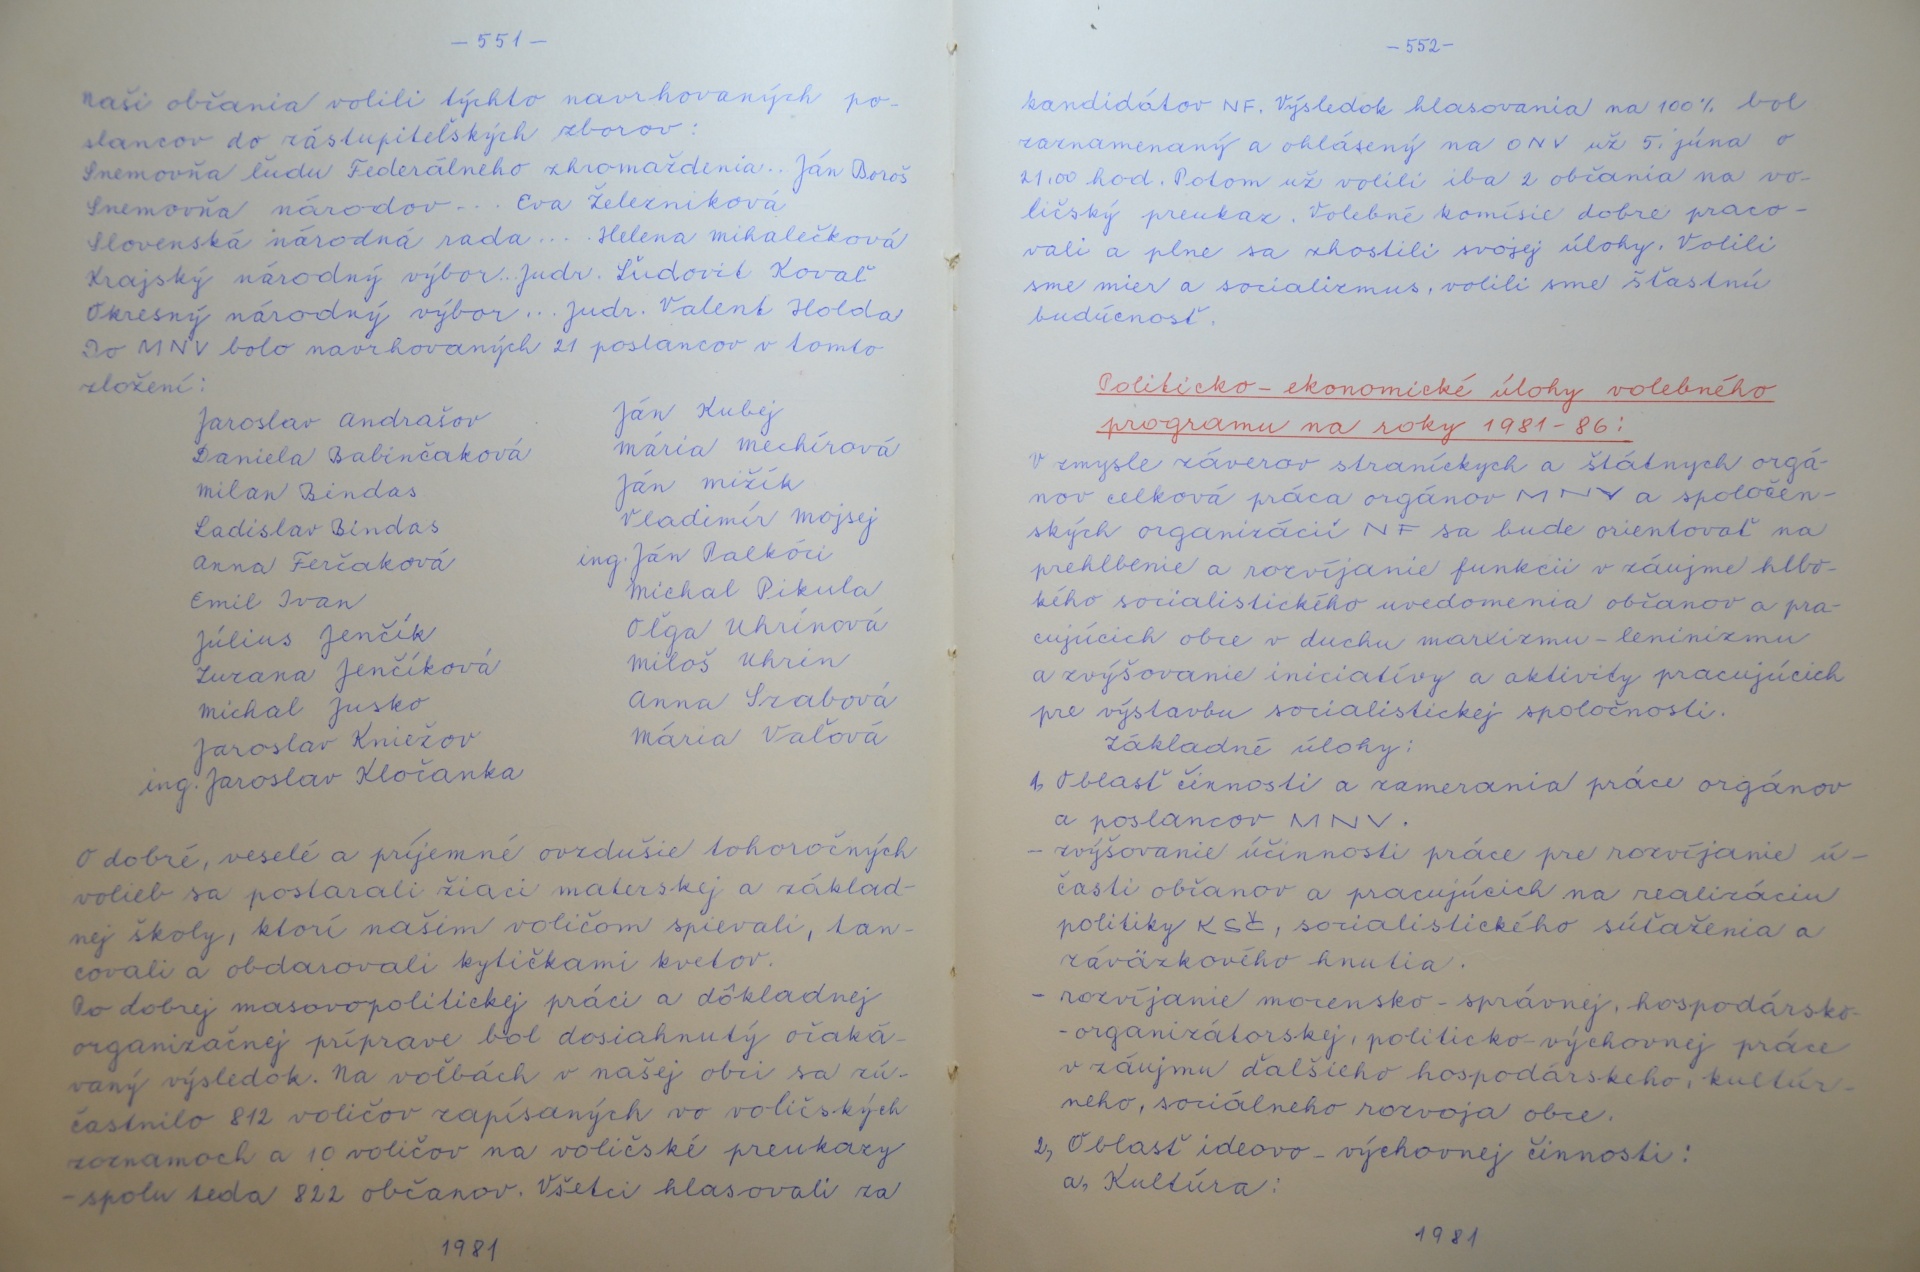 - 551 -
Naši občania volili týchto navrhovaných po-
slancov do zástupiteľských zborov:
Snemovňa ľudu Federálneho zhromaždenia.. Ján Boroš
Snemovňa národov... Eva Železniková
Slovenská národná rada.... Helena Mihalečková
Krajský národný výbor.. Judr. Ľudovít Kovaľ
Okresný národný výbor... Judr. Valent Holda
Do MNV bolo navrhovaných 21 poslancov v tomto
zložení:
Jaroslav Andrašov
Daniela Babinčaková
Milan Bindas
Ladislav Bindas
Anna Ferčaková
Emil Ivan
Július Jenčík
Zuzana Jenčíková
Michal Jusko
Jaroslav Kniežov
ing. Jaroslav Kločanka
Ján Kubej
Mária Mechírová
Ján Mižík
Vladimír Mojsej
ing. Ján Palkóci
Michal Pikula
Oľga Uhrínová
Miloš Uhrin
Anna Szabová
Mária Vaľová
O dobré, veselé a príjemné ovzdušie tohoročných
volieb sa postarali žiaci materskej a základ-
nej školy, ktorí našim voličom spievali, tan-
covali a obdarovali kytičkami kvetov.
Po dobrej masovopolitickej práci a dôkladnej
organizačnej príprave bol dosiahnutý očaká-
vaný výsledok. Na voľbách v našej obci sa zú-
častnilo 812 voličov zapísaných vo voličských
zoznamoch a 10 voličov na voličské preukazy
- spolu teda 822 občanov. Všetci hlasovali za
1981
- 552 -
kandidátov NF. Výsledok hlasovania na 100% bol
zaznamenaný a ohlásený na ONV už 5. júna o
21.00 hod. Potom už volili iba 2 občania na vo-
ličský preukaz. Volebné komisie dobre praco-
vali a plne sa zhostili svojej úlohy. Volili
sme mier a socializmus, volili sme šťastnú
budúcnosť.
Politicko - ekonomické úlohy volebného
programu na roky 1981 - 86:
V zmysle záverov straníckych a štátnych orgá-
nov celková práca orgánov MNV a spoločen-
ských organizácií NF sa bude orientovať na
prehlbenie a rozvíjanie funkcií v záujme hlbo-
kého socialistického uvedomenia občanov a pra-
cujúcich obce v duchu marxizmu - leninizmu
a zvýšovanie iniciatívy a aktivity pracujúcich
pre výstavbu socialistickej spoločnosti.
Základné úlohy:
1, Oblasť činnosti a zamerania práce orgánov
a poslancov MNV.
- zvýšovanie účinnosti práce pre rozvíjanie ú-
časti občanov a pracujúcich na realizáciu
politiky KSČ, socialistického súťaženia a
záväzkového hnutia.
- rozvíjanie mocensko - správnej, hospodársko-
- organizátorskej, politicko - výchovnej práce
v záujmu ďalšieho hospodárskeho, kultúr-
neho, sociálneho rozvoja obce.
2, Oblasť ideovo - výchovnej činnosti:
a, Kultúra:
1981